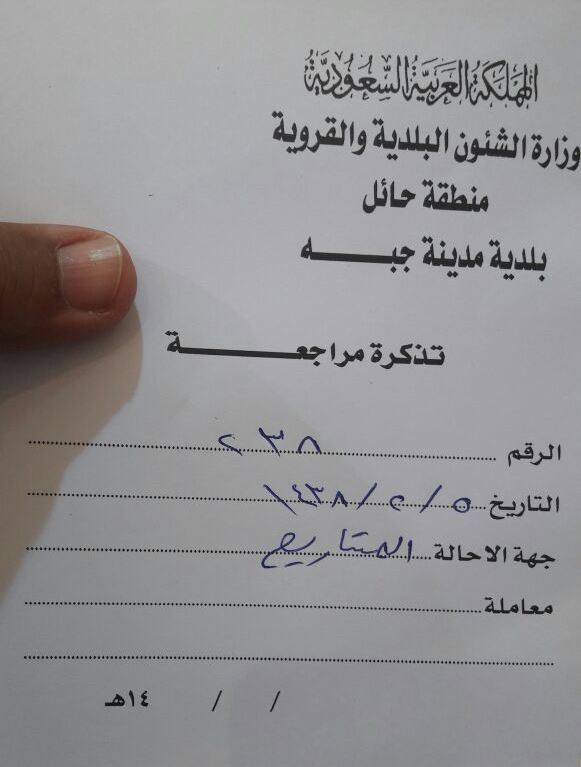 المملكة العربية السعودية
وزارة الشئون البلدية والقروية
منطقة حائل
بلدية مدينة جبـــــه
تذكرة مراجعـــــــــة
الرقم ٢٣٨
التاريخ ٥ / ٢ / ١٤٣٨
جهة الاحالة المشاريع
معاملة
/ / ١٤هـ